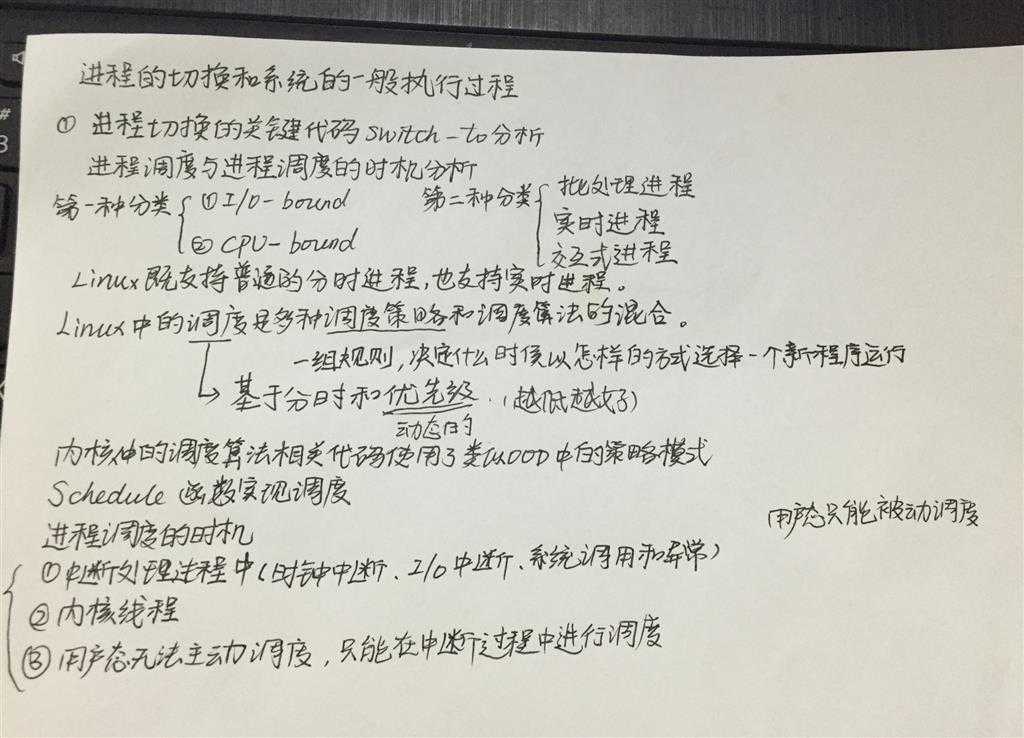 进程的切换和系统的一般执行过程
① 进程切换的关键代码switch-to分析
进程调度与进程调度的时机分析
第一种分类 ①I/O-bound 第二种分类 批处理进程
实时进程
②CPU-bound 交互式进程
Linux既支持普通的分时进程,也支持实时进程。
Linux中的调度是多种调度策略和调度算法的混合。
一组规则,决定什么时候以怎样的方式选择一个新程序运行
基于分时和优先级 (越低越好)
动态的
内核中的调度算法相关代码使用了类似OOD中的策略模式
Schedule函数实现调度
用户态只能被动调度
进程调度的时机
①中断处理过程中(时钟中断、I/O中断、系统调用和异常)
②内核线程
③用户态无法主动调度,只能在中断过程中进行调度